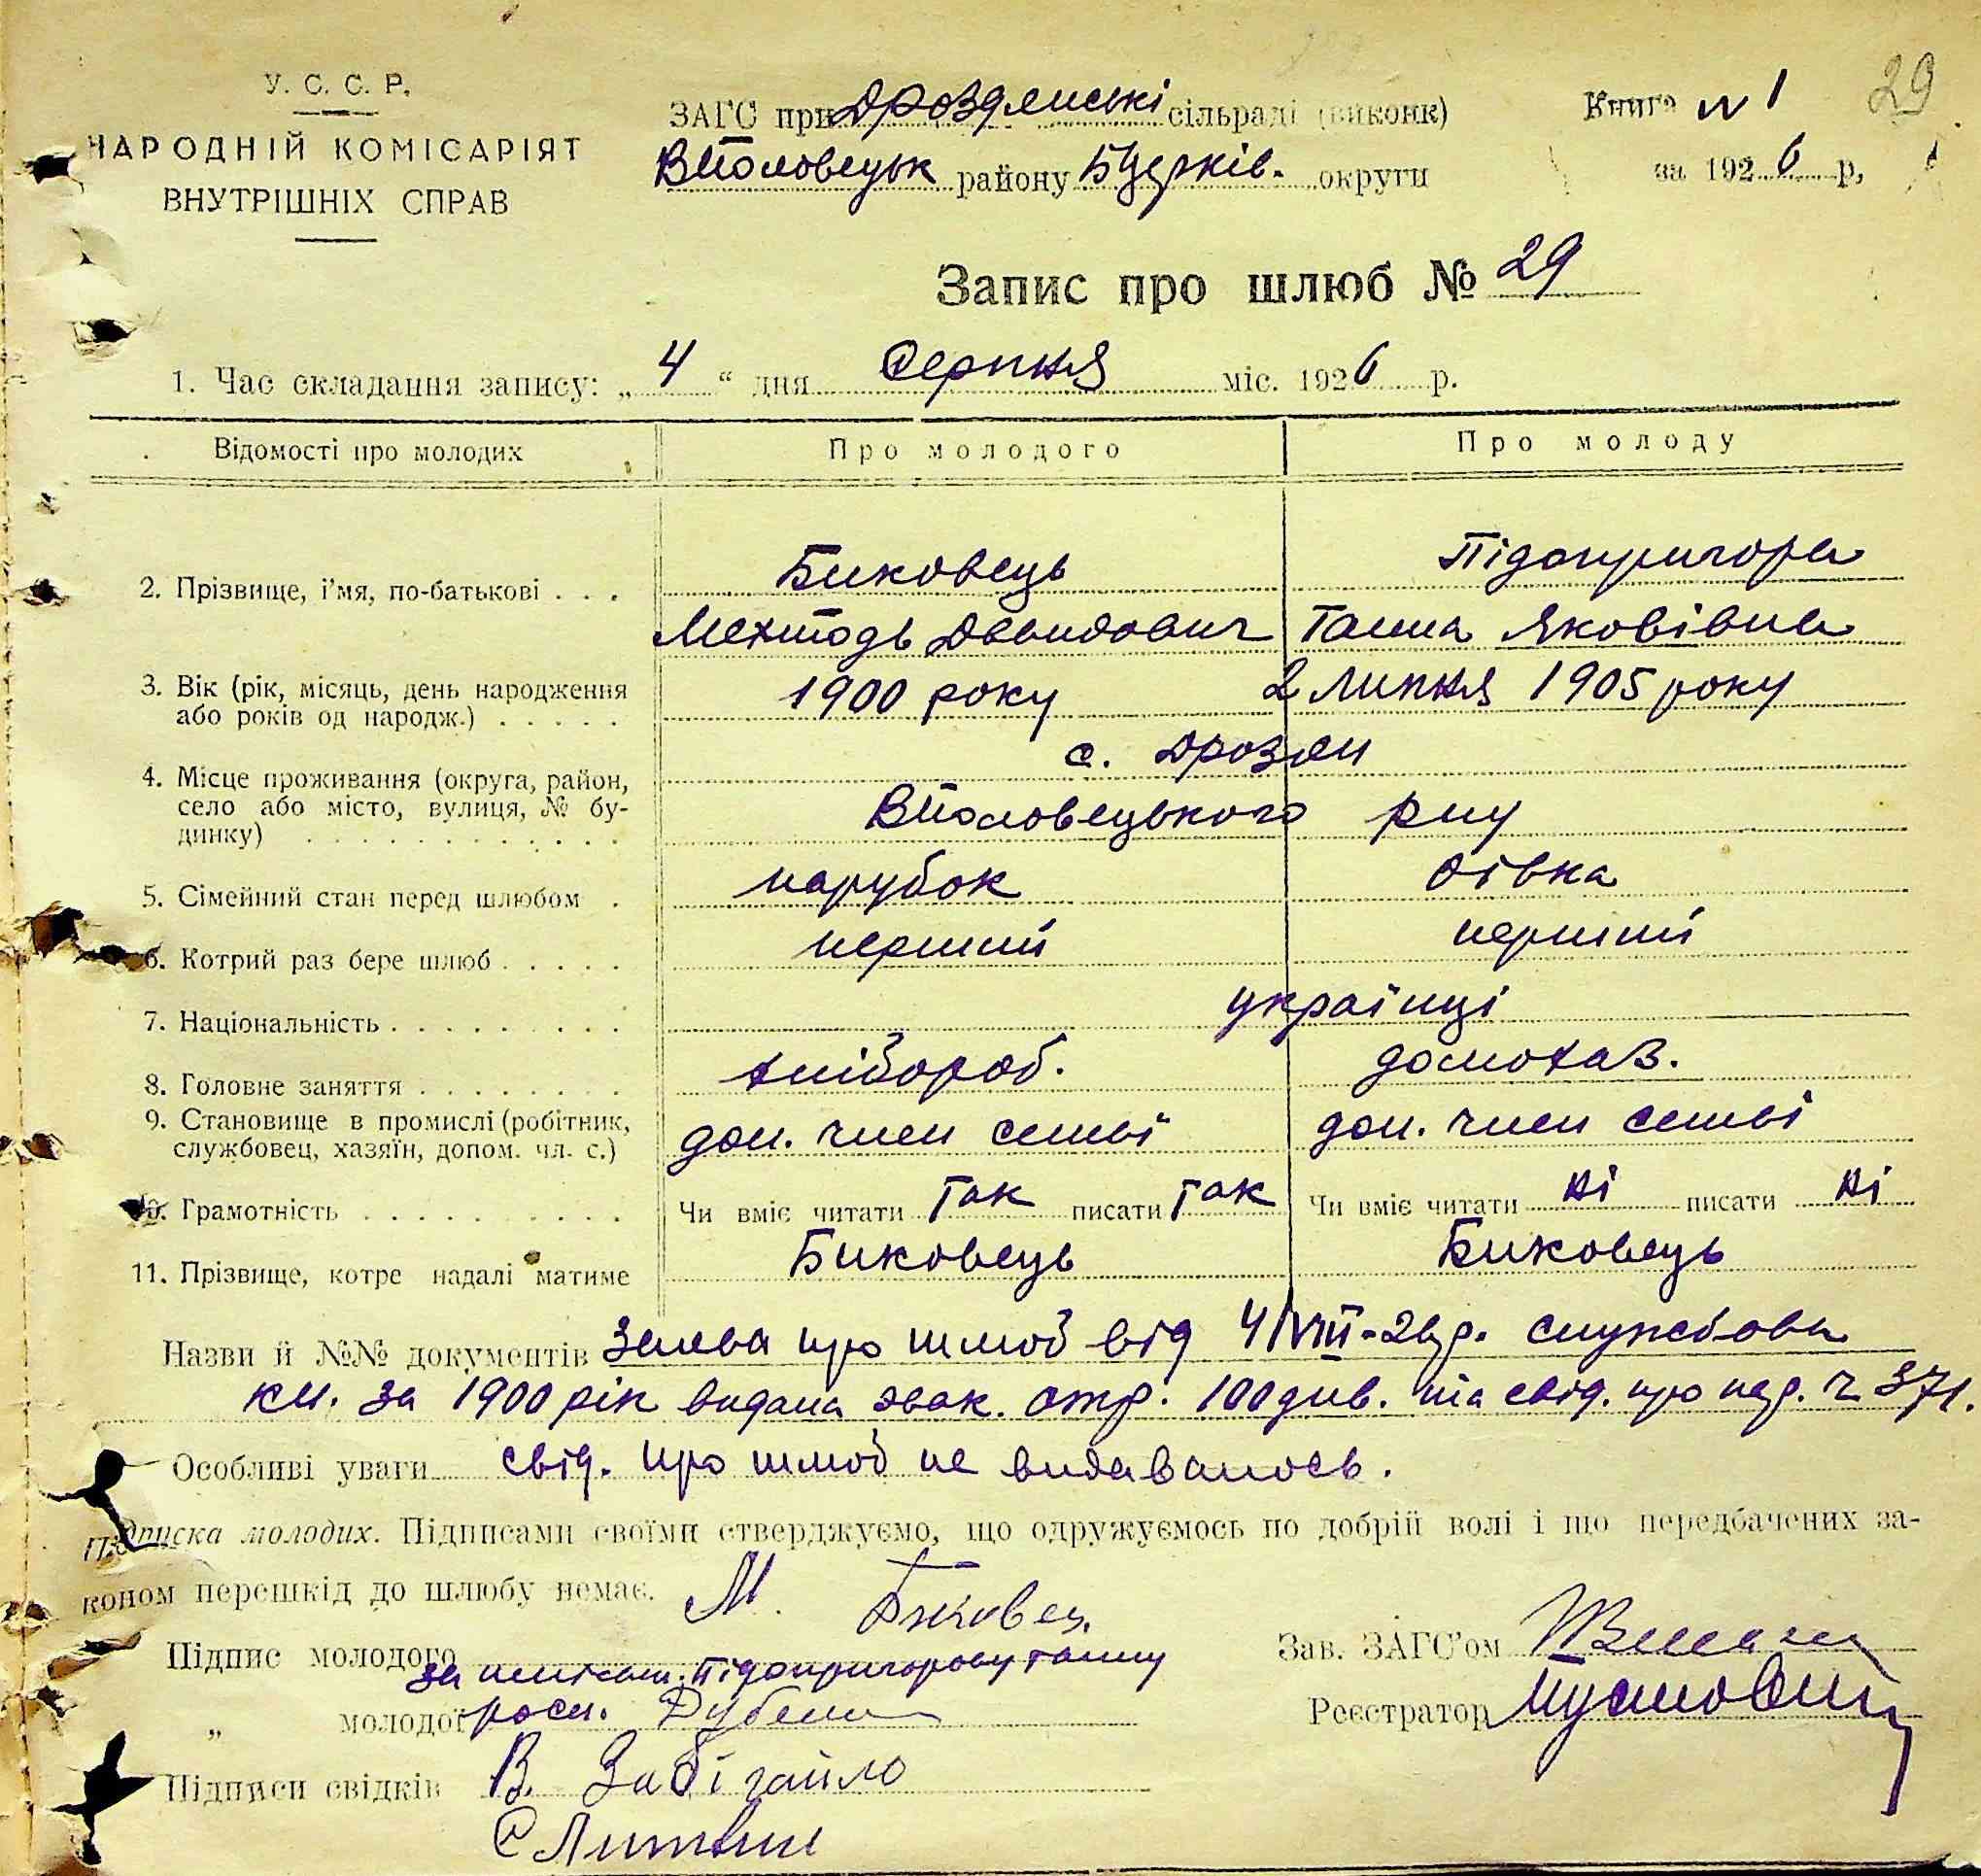 29
У. С. С. Р.
НАРОДНІЙ КОМІСАРІЯТ
ВНУТРІШНІХ СПРАВ
ЗАГС при Дрозденські сільраді (виконк)
ВПоловецьк району БЦерків. округи
Книга № 1
за 1926 р,
Запис про шлюб № 29
1. Час складання запису: „ 4 “ дня Серпня міс. 1926 р.
Відомості про молодих
Про молодого
Про молоду
2. Прізвище, і’мя, по-батькові . . .
Биковець
Мехтодь Давидович
Підопригора
Ганна Яковівна
3. Вік (рік, місяць, день народження
або років од народж.) . . . . .
1900 року
2 липня 1905 року
4. Місце проживання (округа, район,
село або місто, вулиця, № бу-
динку) . . . . . . . . . . . .
с. Дрозди
ВПоловецького р-ну
5. Сімейний стан перед шлюбом .
парубок
дівка
6. Котрий раз бере шлюб . . . . .
перший
перший
7. Національність . . . . . . . . .
українці
8. Головне заняття . . . . . . . .
хлібороб.
домохаз.
9. Становище в промислі (робітник,
службовец, хазяїн, допом. чл. с.)
доп. член семьї
доп. член семьї
10. Грамотність . . . . . . . . . .
Чи вміє читати так писати так
Чи вміє читати ні писати ні
11. Прізвище, котре надалі матиме
Биковець
Биковець
Назви й №№ документів Заява про шлюб від 4/VIII-26 р. службова
кн. за 1900 рік видана отр. 100 див. та свід. про нар. ч 371.
Особливі уваги свід. про шлюб не видавалось.
Підписка молодих. Підписами своїми стверджуємо, що одружуємось по добрій волі і що передбачених за-
коном перешкід до шлюбу немає.
Підпис молодого М. Биковец
за Підопригорову Ганну
„ молодої росп. Дубена
Підписи свідків В. Забігайло
С Литвин
Зав. ЗАГС’ом
Реєстратор